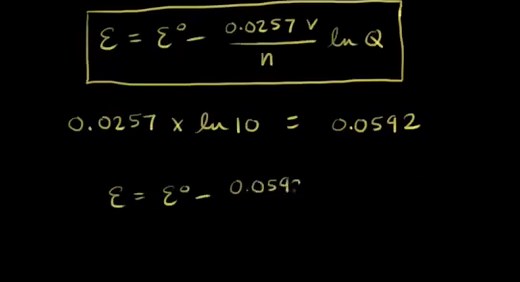 ε = ε° - 0.0257 V / n ln Q
0.0257 x ln 10 = 0.0592
ε = ε° - 0.059